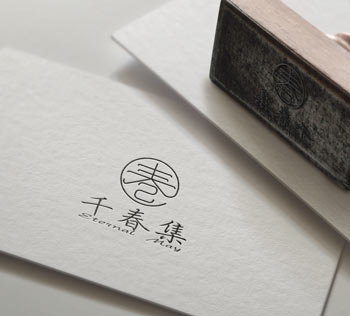 春
千春集
Eternal May